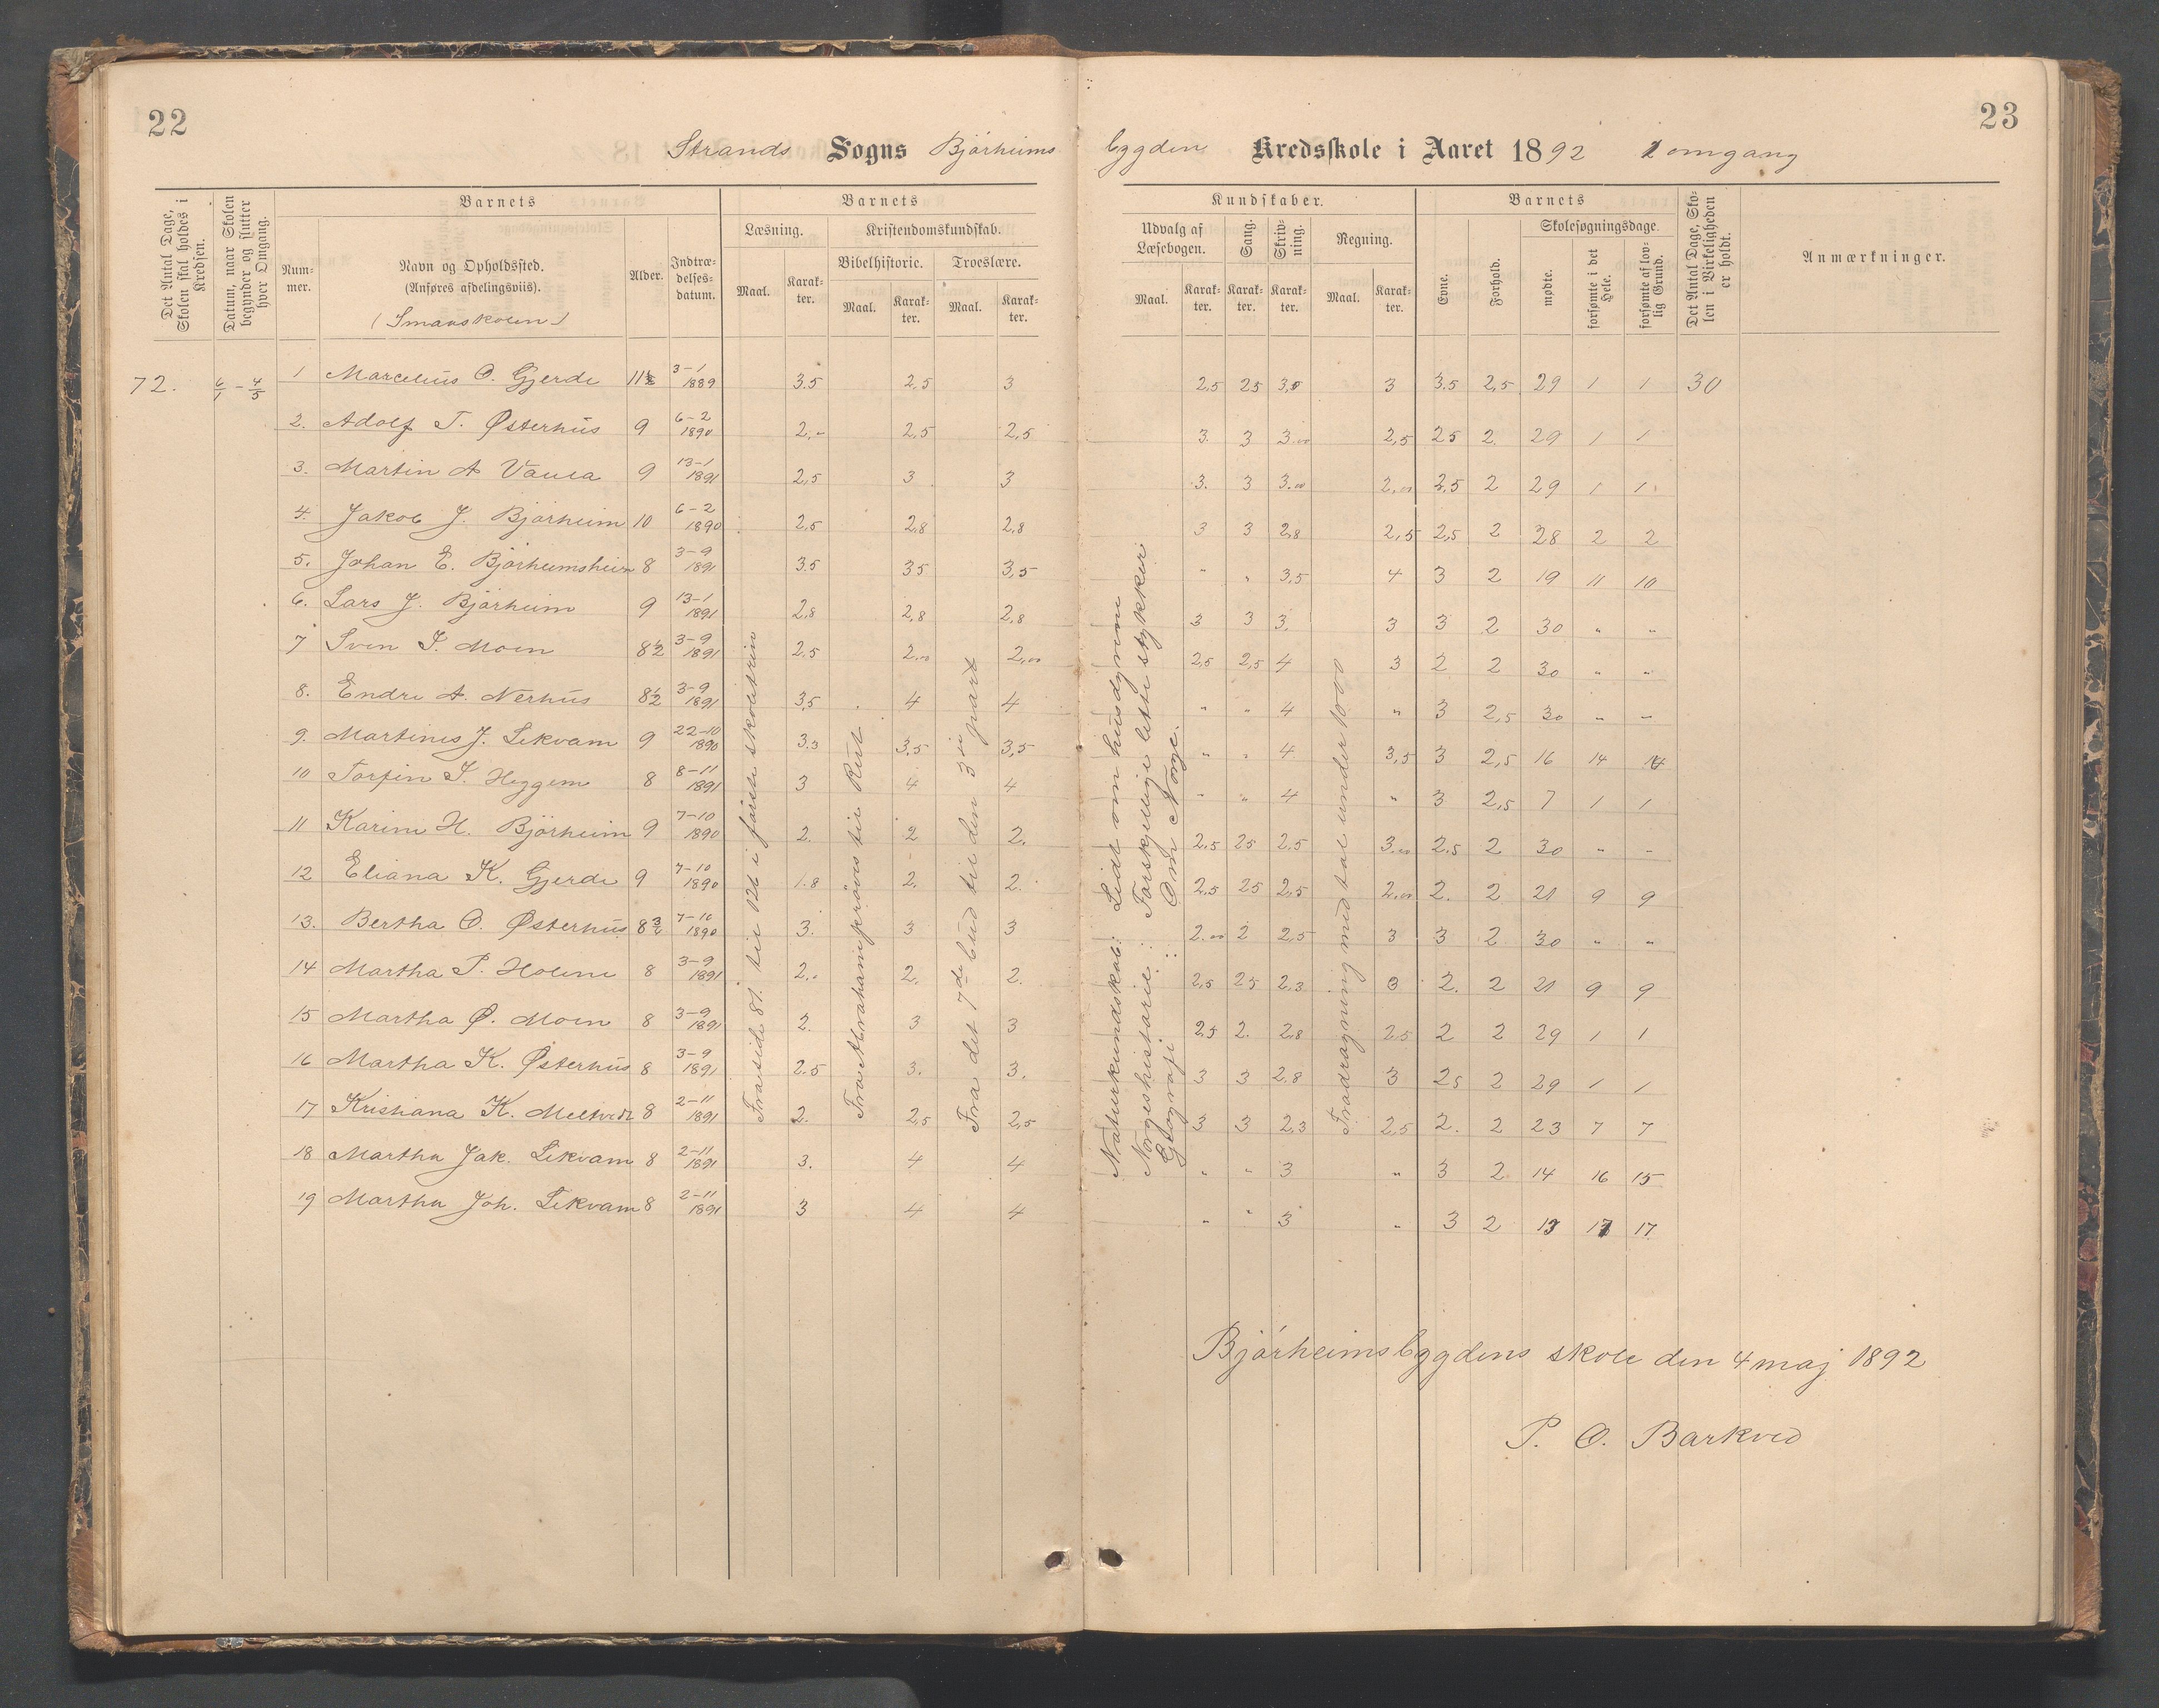 22
23
Strands Sogns Bjórheims bygdens Kredsskole i Aaret 1892 1 omgang
Det Antal Dage, Skolen skal holdes i Kredsen.
Datum, naar Skolen begynder og slutter hver Omgang.
Barnets
Num-mer.
Navn og Opholdssted.
(Anføres afdelingsviis).
(Smaaskolen)
Alder.
Indtræ-delses-datum.
Barnets
Læsning.
Maal.
Karak-ter.
Kristendomskundskab.
Bibelhistorie.
Maal.
Karak-ter.
Troeslære.
Maal.
Karak-ter.
Kundskaber.
Udvalg af Læsebogen.
Maal.
Karak-ter.
Sang.
Karak-ter.
Skriv-ning.
Karak-ter.
Regning.
Maal.
Karak-ter.
Barnets
Evne.
Forhold.
Skolesøgningsdage.
mødte.
forsømte i det Hele.
forsømte af lov-lig Grund.
Det Antal Dage, Sko-len i Virkeligheden er holdt.
Anmærkninger.
72. 6/1 – 4/5 1 Marcelius O. Gjerde 11½ 3-1 1889 3.5 2,5 3 2,5 25 3,0 3 3.5 2,5 29 1 1 30
2. Adolf T. Østerhus 9 6-2 1890 2,- 2,5 2,5 3. 3 3.00 2,5 25 2. 29 1 1
3. Martin A Vaula 9 13-1 1891 2,5 3 3 3. 3 3.00 2,00 2,5 2 29 1 1
4. Jakob J. Bjørheim 10 6-2 1890 2,5 2,8 2,8 3 3 2,8 2,5 2,5 2 28 2 2
5. Johan E. Bjørheimsheim 8 3-9 1891 3.5 35 3,5 " " 3,5 4 3 2 19 11 10
6. Lars J. Bjørheim 9 13-1 1891 2,8 2,8 2,8 3 3 3. 3 3 2 30 " "
7 Sven S. Moen 8½ 3-9 1891 2.5 2,00 2,00 2,5 2,5 4 3 2 2 30 " "
8. Endre A. Nerhus 8½ 3-9 1891 3,5 4 4 " " 4 " 3 2,5 30 " "
9. Martines J. Lekvam 9 22-10 1890 3.3 3,5 3,5 " " 4 3,5 3 2,5 16 14 14
10 Torfin S. Heggem 8 8-11 1891 3 4 4 " " 4 " 3 2,5 7 1 1
11 Karine H. Bjørheim 9 7-10 1890 2. 2 2. 2.5 25 2.5 3.00 2.5 2 30 " "
12 Eliana K. Gjerde 9 7-10 1890 1.8 2. 2. 2,5 25 2,5 2.00 2. 2 21 9 9
13. Bertha O. Østerhus 8¾ 7-10 1890 3. 3 3 2.00 2 2,5 3 3 2 30 " "
14 Martha P. Holene 8 3-9 1891 2.. 2. 2. 2,5 25 2.3 3 2. 2 21 9 9
15 Martha Ø. Moen 8 3-9 1891 2. 3 3 2.5 2. 2,8 2.5 2 2 29 1 1
16 Martha K. Østerhus 8 3-9 1891 2.5 3. 3. 3 3 2.8 3 25 2 29 1 1
17 Kristiana K. Meltvedt 8 2-11 1891 2. 2,5 2,5 3 3 2,3 2,5 2. 2 23 7 7
18 Martha Jak. Lekvam 8 2-11 1891 3. 4 4 " " 3 " 3 2 14 16 15
19 Martha Joh. Lekvam 8 2-11 1891 3 4 4 " " 3 " 3 2 13 17 17
Fra side 81. til 126 i første skoletrin
Fra Abrahamsprøves til Rut
Fra det 7de bud til den 3die part
Naturkundskab: Lidt om husdyrene
Norgeshistorie: Forskjellige lette stykker
Geografi: Om Norge.
Fradragning med tal under 1000
Bjórheimsbygdens skole den 4 maj 1892
P. O. Barkved